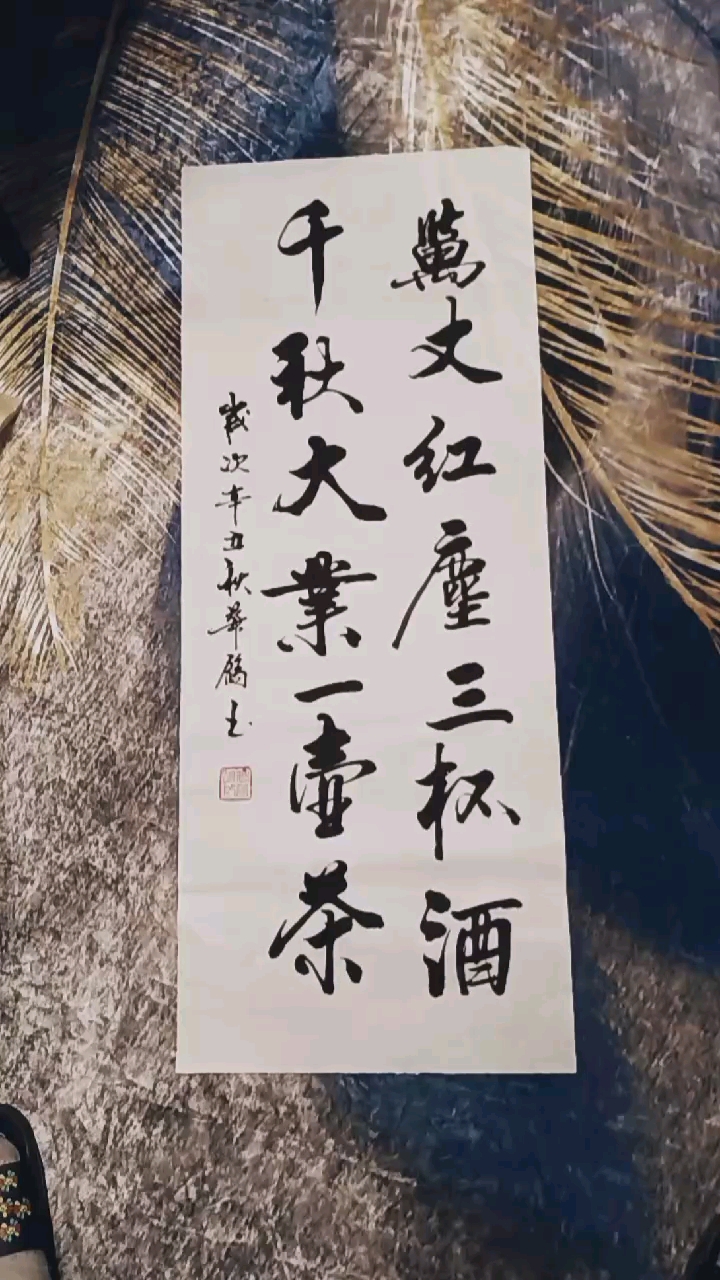 萬丈红塵三杯酒
千秋大業一壺茶
歲次辛丑秋華